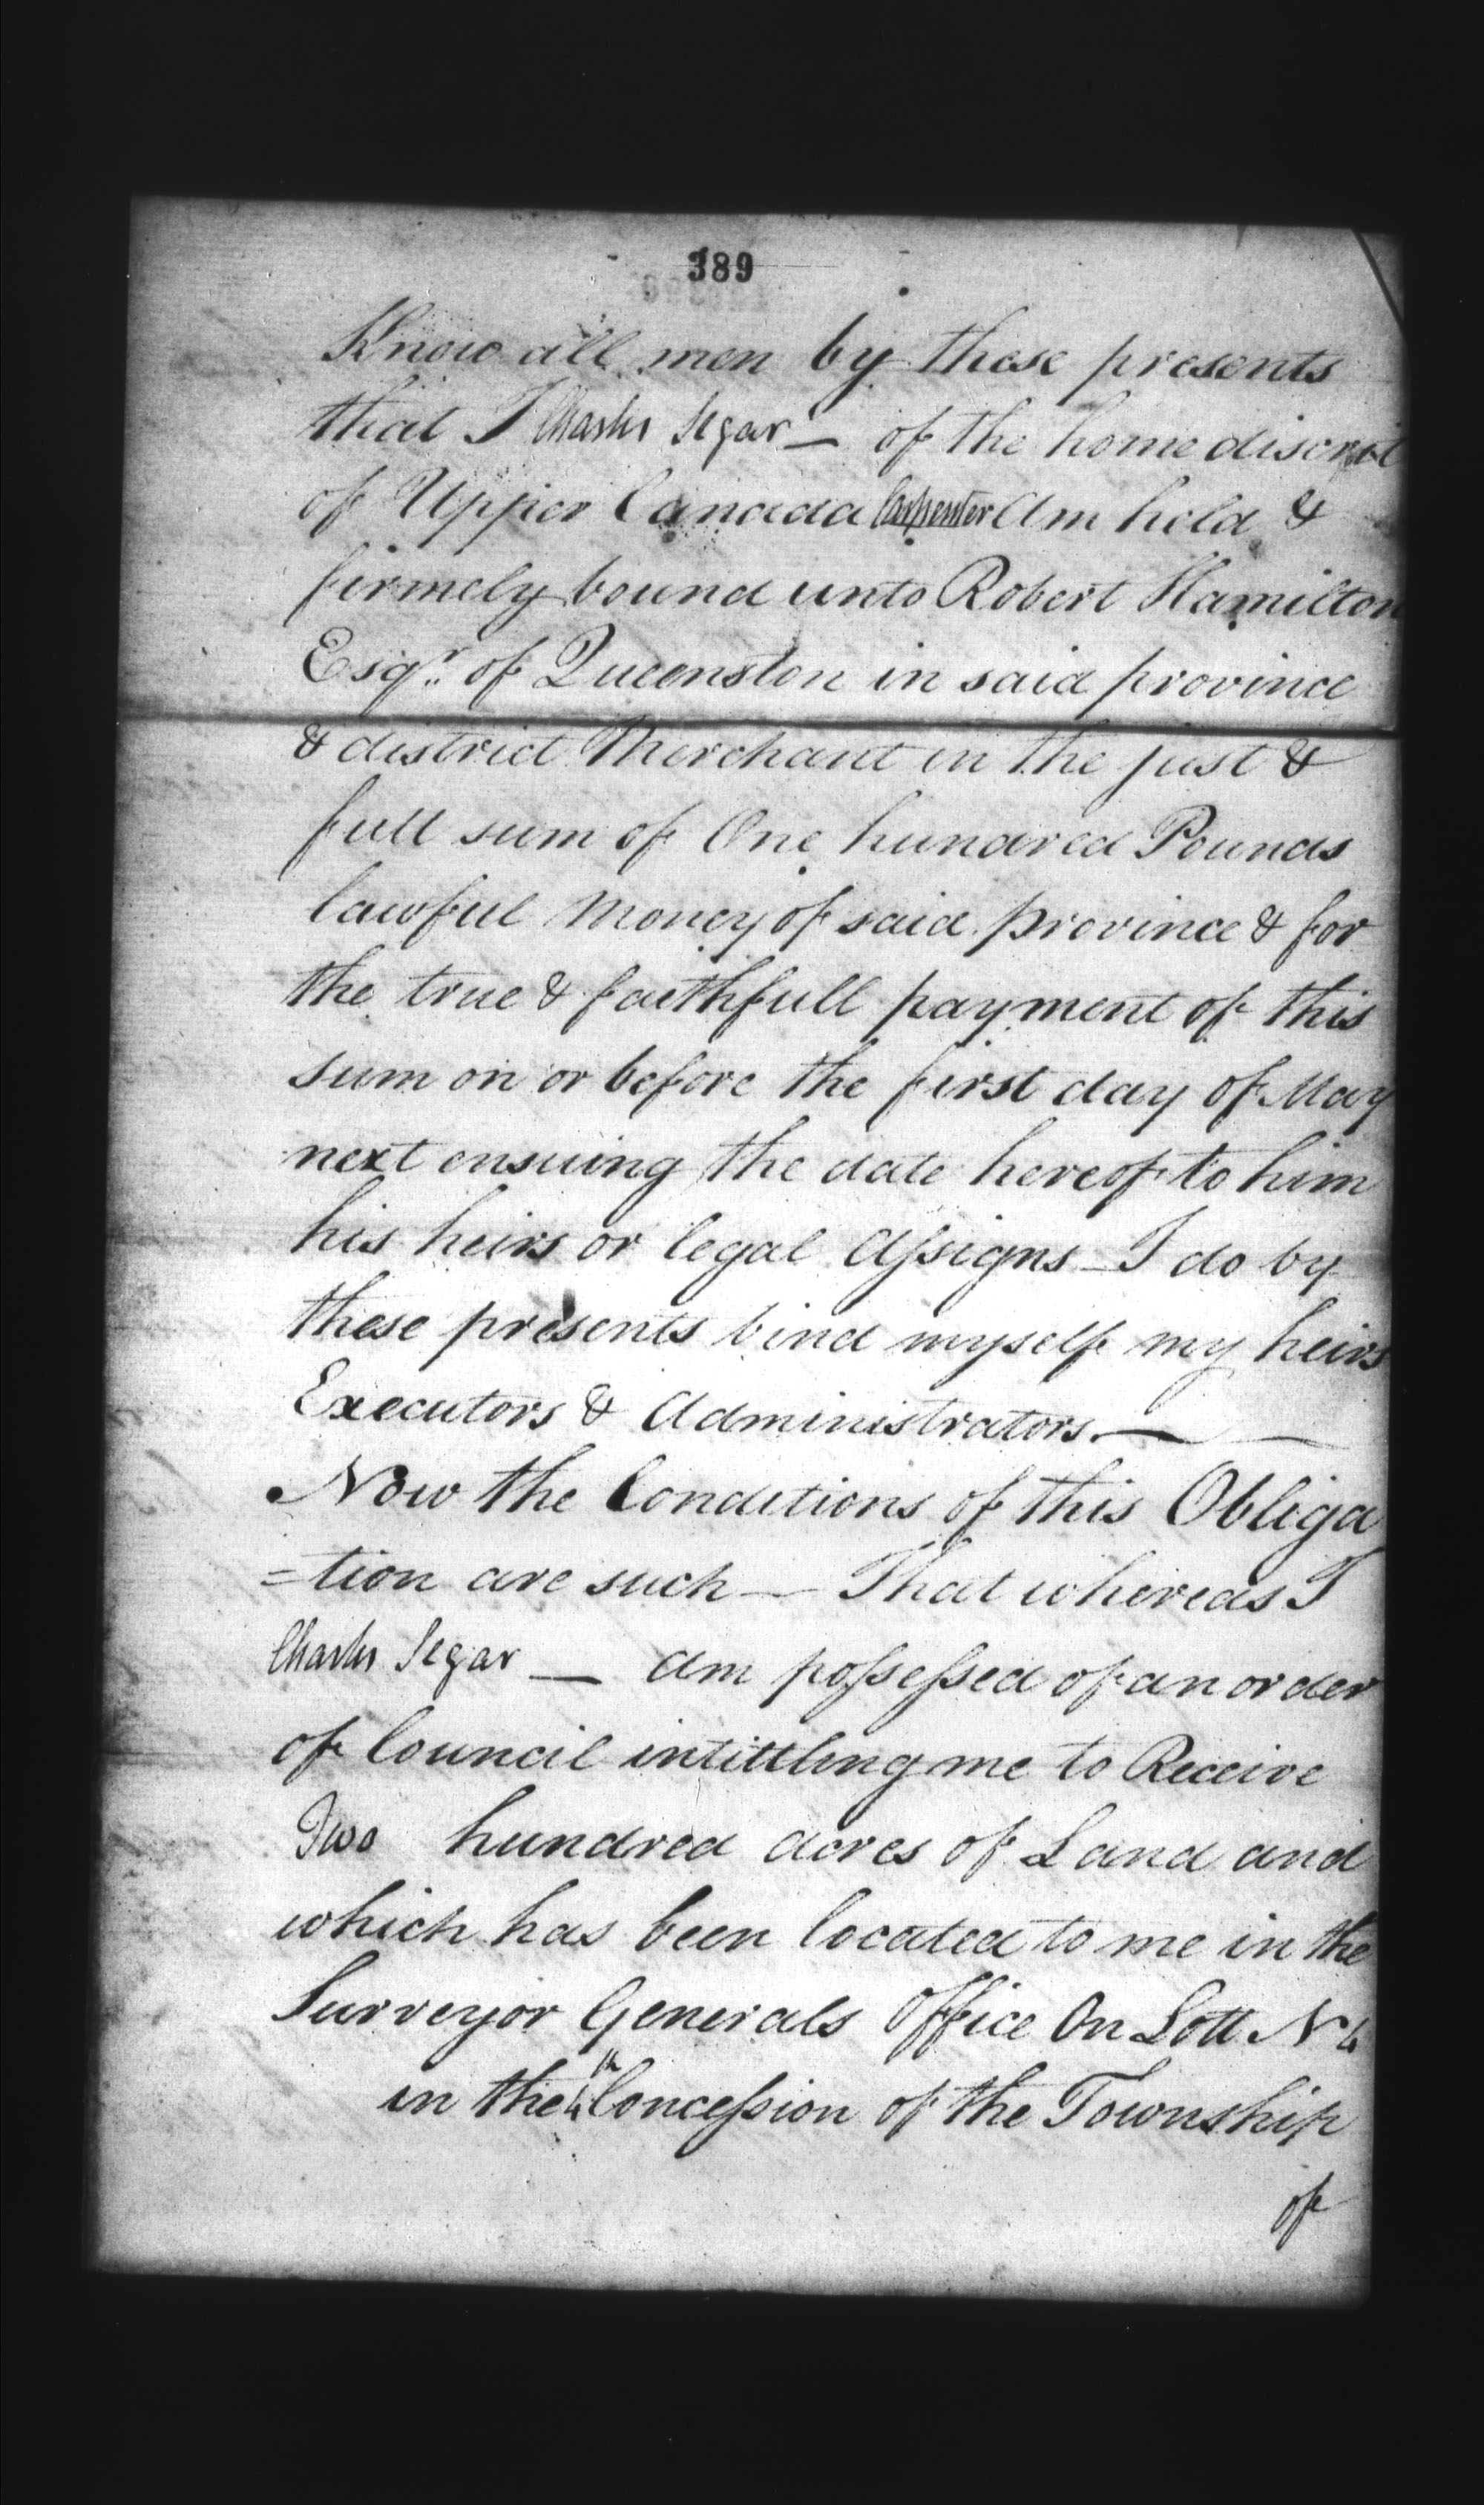 389
Know all men by these presents
that I Charles Segar — of the home discrict
of Upper Canada Carpenter Am held &
firmely bound unto Robert Hamilton
Esqr. of Queenston in said province
& district Merchant in the just &
full sum of One hundred Pounds
lawful Money of said province & for
the true & faithfull payment of this
sum on or before the first day of May
next ensuing the date hereof to him
his heirs or legal Assigns — I do by
these presents bind myself my heirs
Executors & Administrators. —
Now the Conditions of this Obliga
=tion are such — That whereas I
Charles Segar — Am possessed of an order
of Council intittling me to Receive
Two hundred Acres of Land and
which has been located to me in the
Surveyor Generals Office On Lott N 6
in the 4th Concession of the Township
of